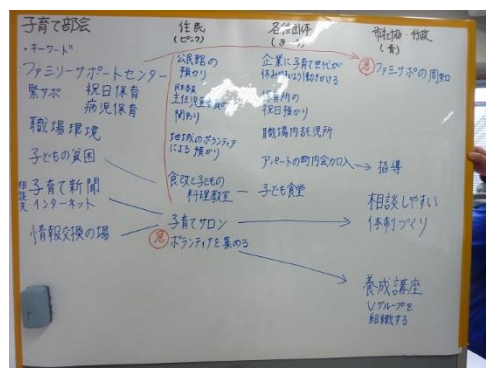 子育て部会
・キーワード
ファミリーサポートセンター
緊サポ 祝日保育
病児保育
職場環境
子どもの貧困
相談失
子育て新聞
インターネット
情報交換の場
住民
(ピンク)
公民館の
預かり
民委
主任児童委員の
関わり
地域のボランティア
による預かり
食改と子どもの
料理教室
子育てサロン
急
ボランティアを集める
各種団体
企業に子育て世代が
保育所の
祝日預かり
職場内託児所
アパートの町内会加入
子ども食堂
市社協・行政
(青)
急
ファミサポの周知
指導
相談しやすい
体制づくり
養成講座
Vグループを
組織する